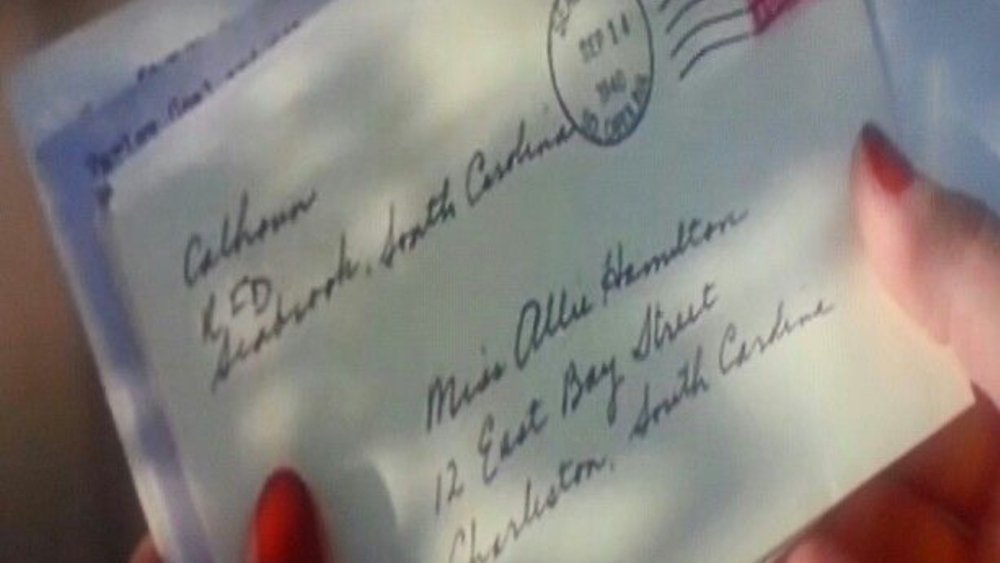 SEP 14
1940
Calhoun
RFD
Seabrook, South Carolina
Miss Allie Hamilton
12 East Bay Street
Charleston, South Carolina